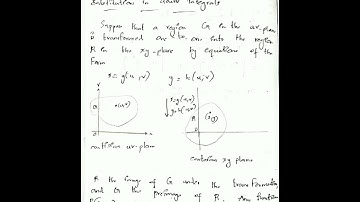 Substitution in double integrals
Suppose that a region G in the uv-plane
is transformed one to one into the region
R in the xy-plane by equations of the
form
x = g(u,v) y = h(u,v)
v
(u,v)
x=g(u,v)
y=h(u,v)
R
G
(x,y)
0
cartesian uv-plane
cartesian xy plane
R the image of G under the transformation
and G the preimage of R. Any function